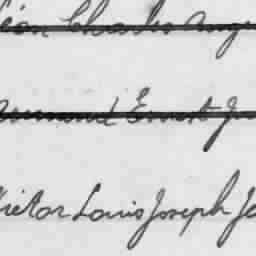 Léon Charles Ange
Armand Ernest J
Victor Louis Joseph Je